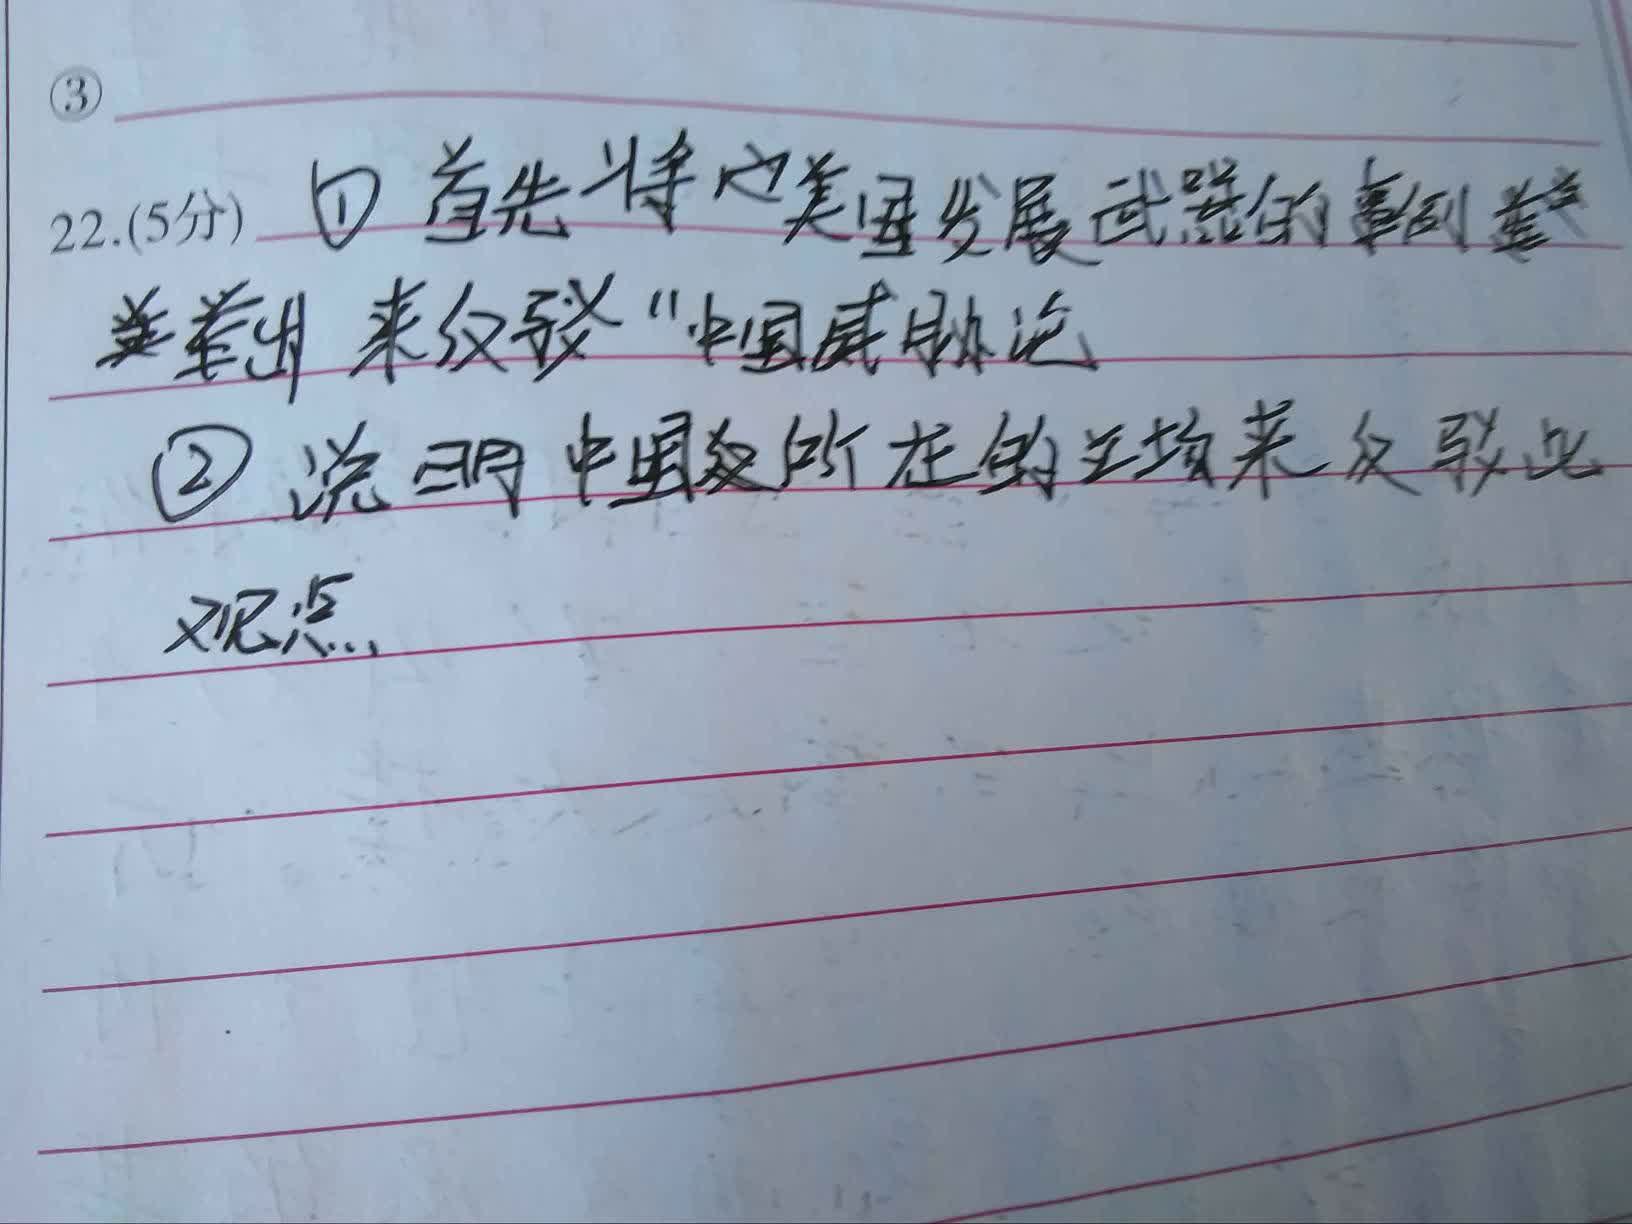 ③
22.(5分) ① 首先将以美国发展武器的事例
举出来反驳“中国威胁论
② 说明中国所在的立场来反驳此
观点.